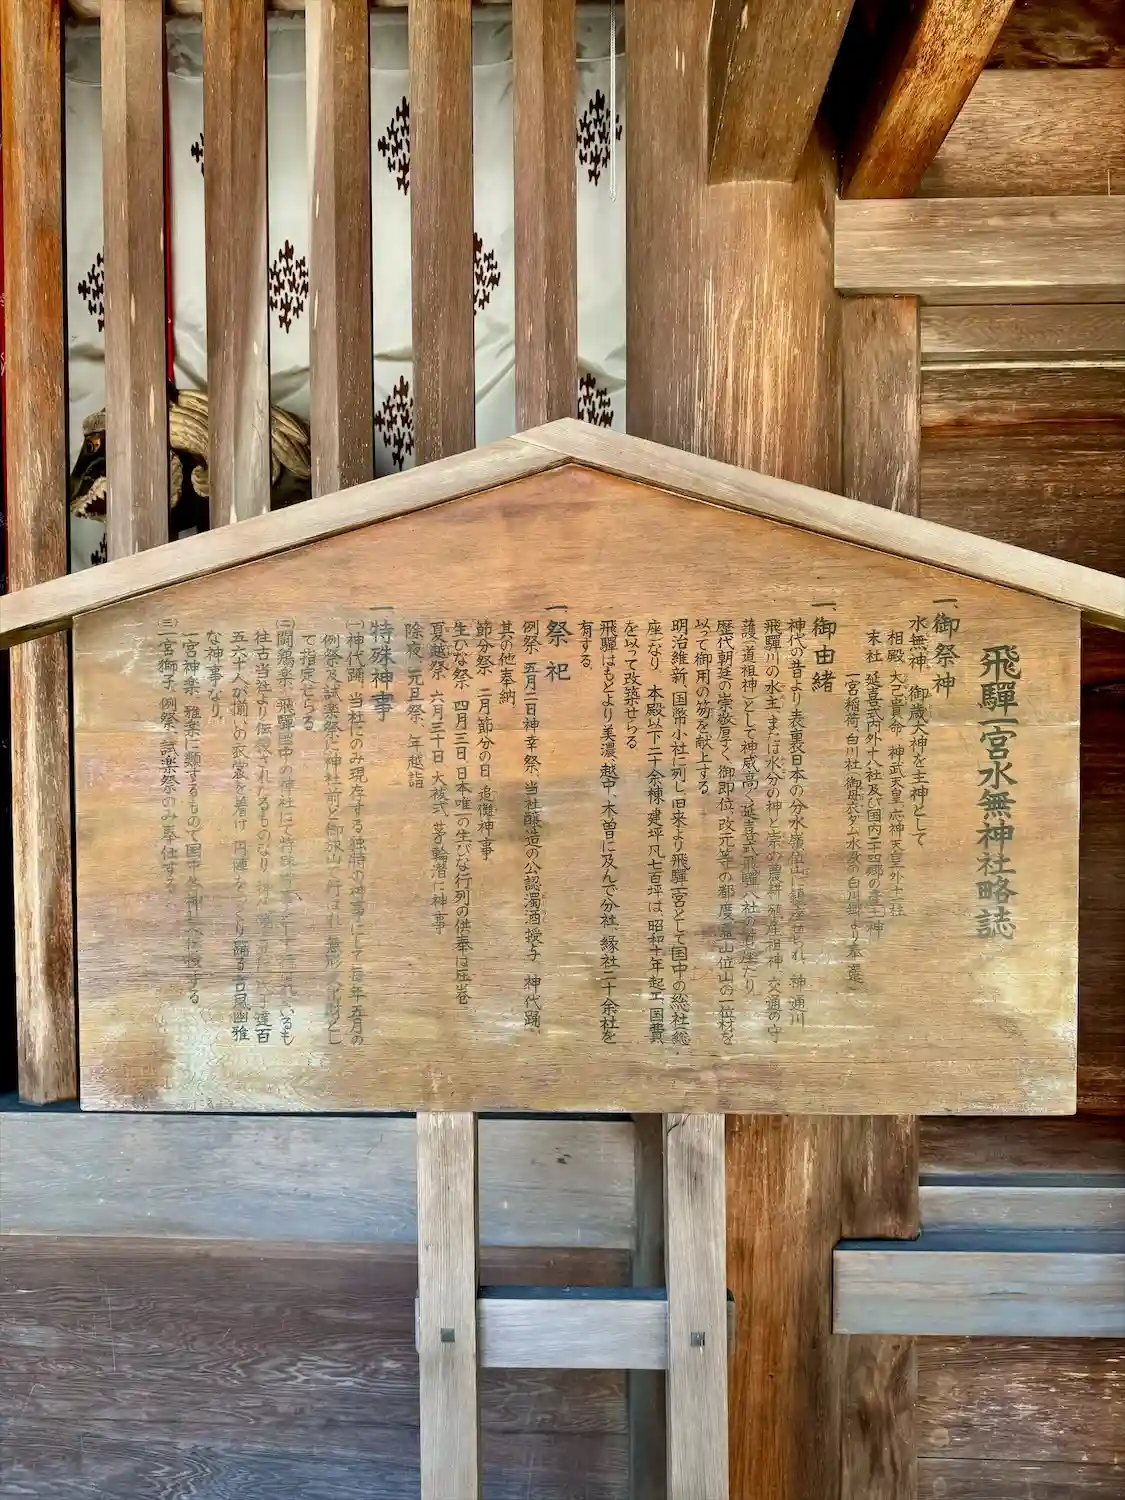 飛驒一宮水無神社略誌
一、御祭神
水無神 御歳大神を主神として
相殿 大己貴命 神武天皇 応神天皇外十一柱
末社 延喜式内外十八社及び国内二十四郷の産土神
一宮稲荷、白川社(御母衣ダム水没の白川郷より奉遷
一、御由緒
神代の昔より表裏日本の分水嶺位山に鎮座せられ、神通川
飛驒川の水主、または水分の神と崇め農耕、殖産祖神、交通の守
護(道祖神)として神威高く延喜式飛驒八社の首座たり、
歴代朝廷の崇敬厚く、御即位、改元等の都度、霊山位山の一位材を
以って御用の笏を献上する。
明治維新、国幣小社に列し旧来より飛驒一宮として国中の総社総
座なり、本殿以下二十余棟、建坪凡七百坪は、昭和十年起工、国費
を以って改築せらる
飛驒はもとより美濃、越中、木曽に及んで分社、縁社二十余社を
有する。
一、祭祀
例祭、五月二日神幸祭、当社醸造の公認濁酒授与、神代踊、
其の他奉納
節分祭 二月節分の日、追儺神事
生びな祭 四月三日、日本唯一の生びな行列の供奉は圧巻
夏越祭 六月三十日、大祓式、茅輪潜に神事
除夜、元旦祭、年越詣
一、特殊神事
(一)神代踊、当社にのみ現存する独特の神事にして毎年五月の
例祭及試楽祭に神社前と御旅山で行はれ、無形文化財とし
て指定せらる
(二)闘鶏楽、飛驒国中の神社にて特殊神事として行はれているも
往古当社より伝授されたるものなり、
五六十人が揃いの衣裳を着け、円陣をつくり踊る古風幽雅
な神事なり、
一宮神楽、雅楽に類するもので国中各神社へ伝授する
(三)一宮獅子、例祭、試楽祭のみ奉仕する。